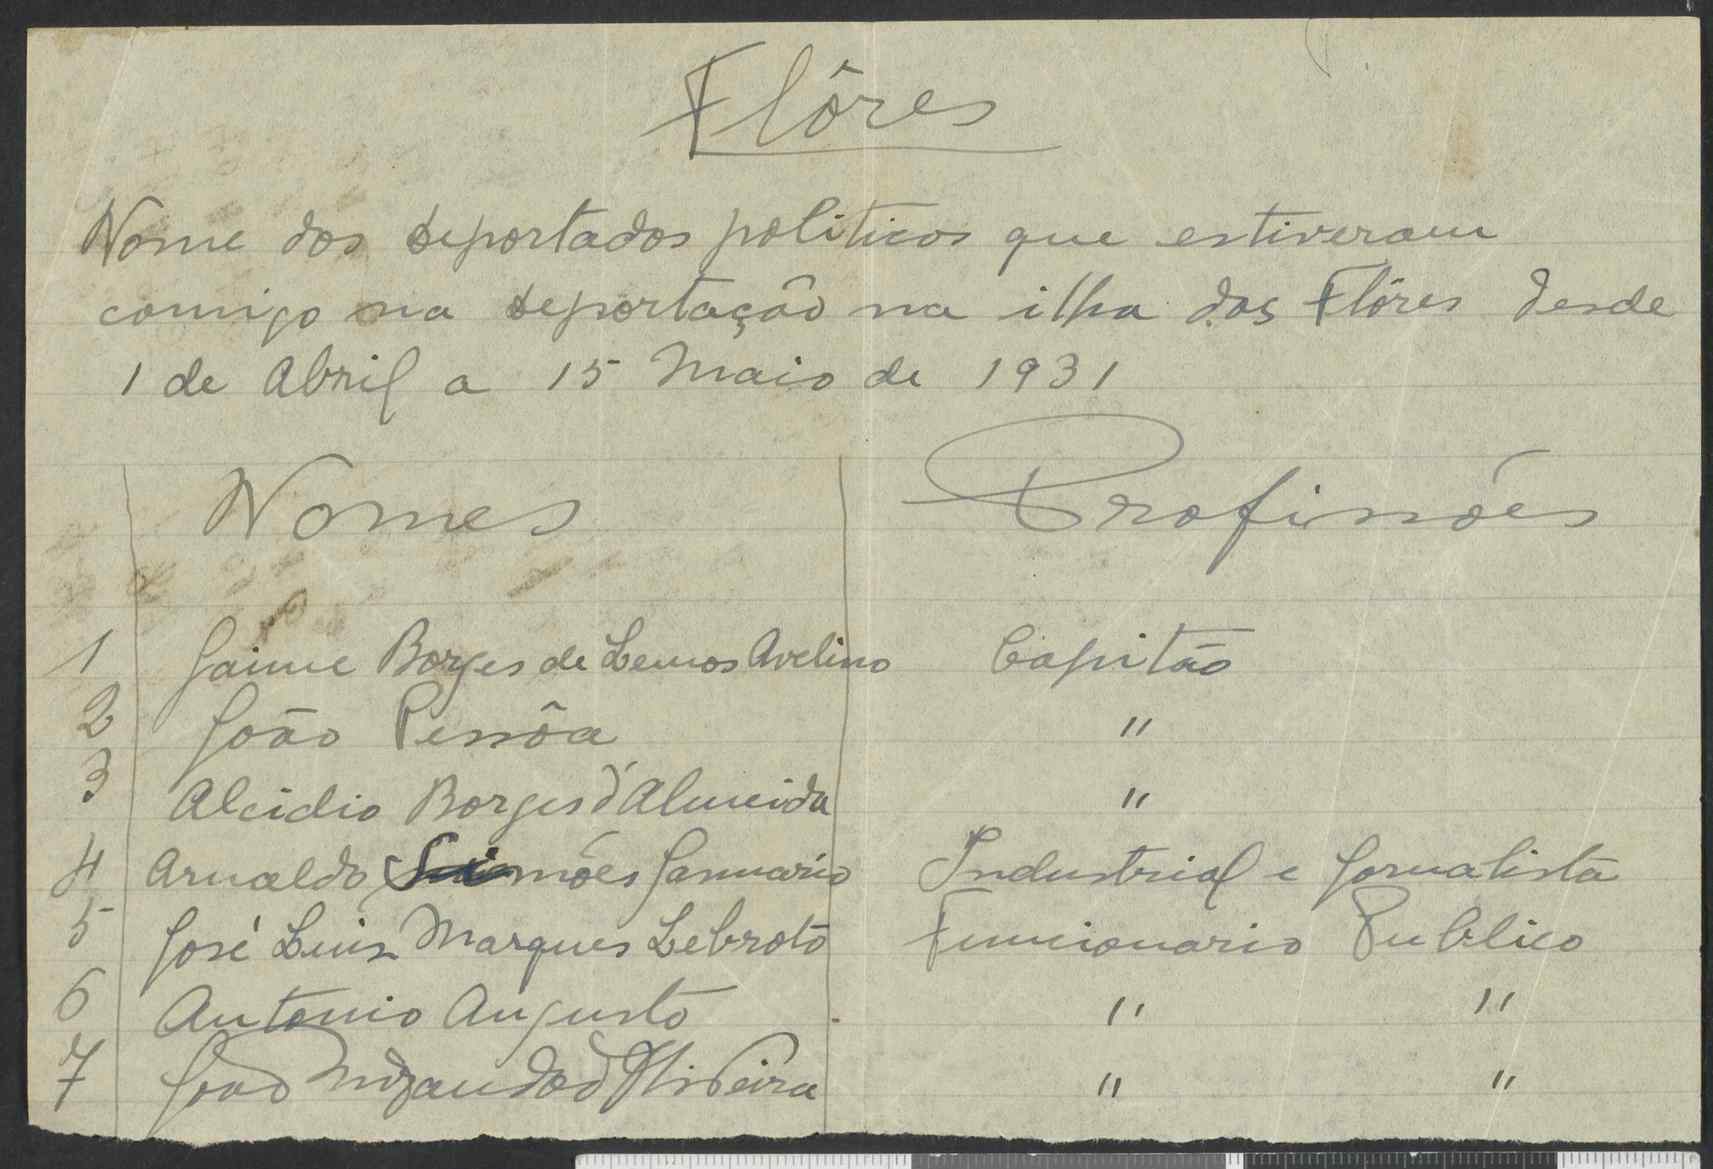 Flôres
Nome dos deportados politicos que estiveram
comigo na deportação na ilha das Flôres desde
1 de Abril a 15 Maio de 1931
Nomes Profissões
1 Jaime Borges de Lemos Avelino Capitão
2 João Pessôa "
3 Alcidio Borges d'Almeida "
4 Arnaldo Simões Januario Industrial e Jornalista
5 José Luis Marques Lebroto Funcionario Publico
6 Antonio Augusto " "
7 João d'Oliveira " "